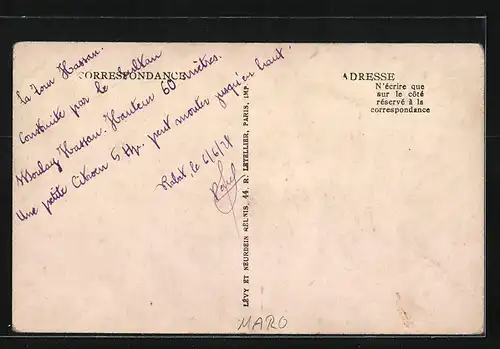 CORRESPONDANCE
La Tour Hassan.
Construite par le Sultan
Moulay Hassan. Hauteur 60 mètres.
Une petite Citroën 5 Hp. peut monter jusqu'en haut.
Rabat, le 6/6/28
ADRESSE
N'écrire que
sur le côté
réservé à la
correspondance
LÉVY ET NEURDEIN RÉUNIS, 44, R. LETELLIER, PARIS, IMP.
MARO